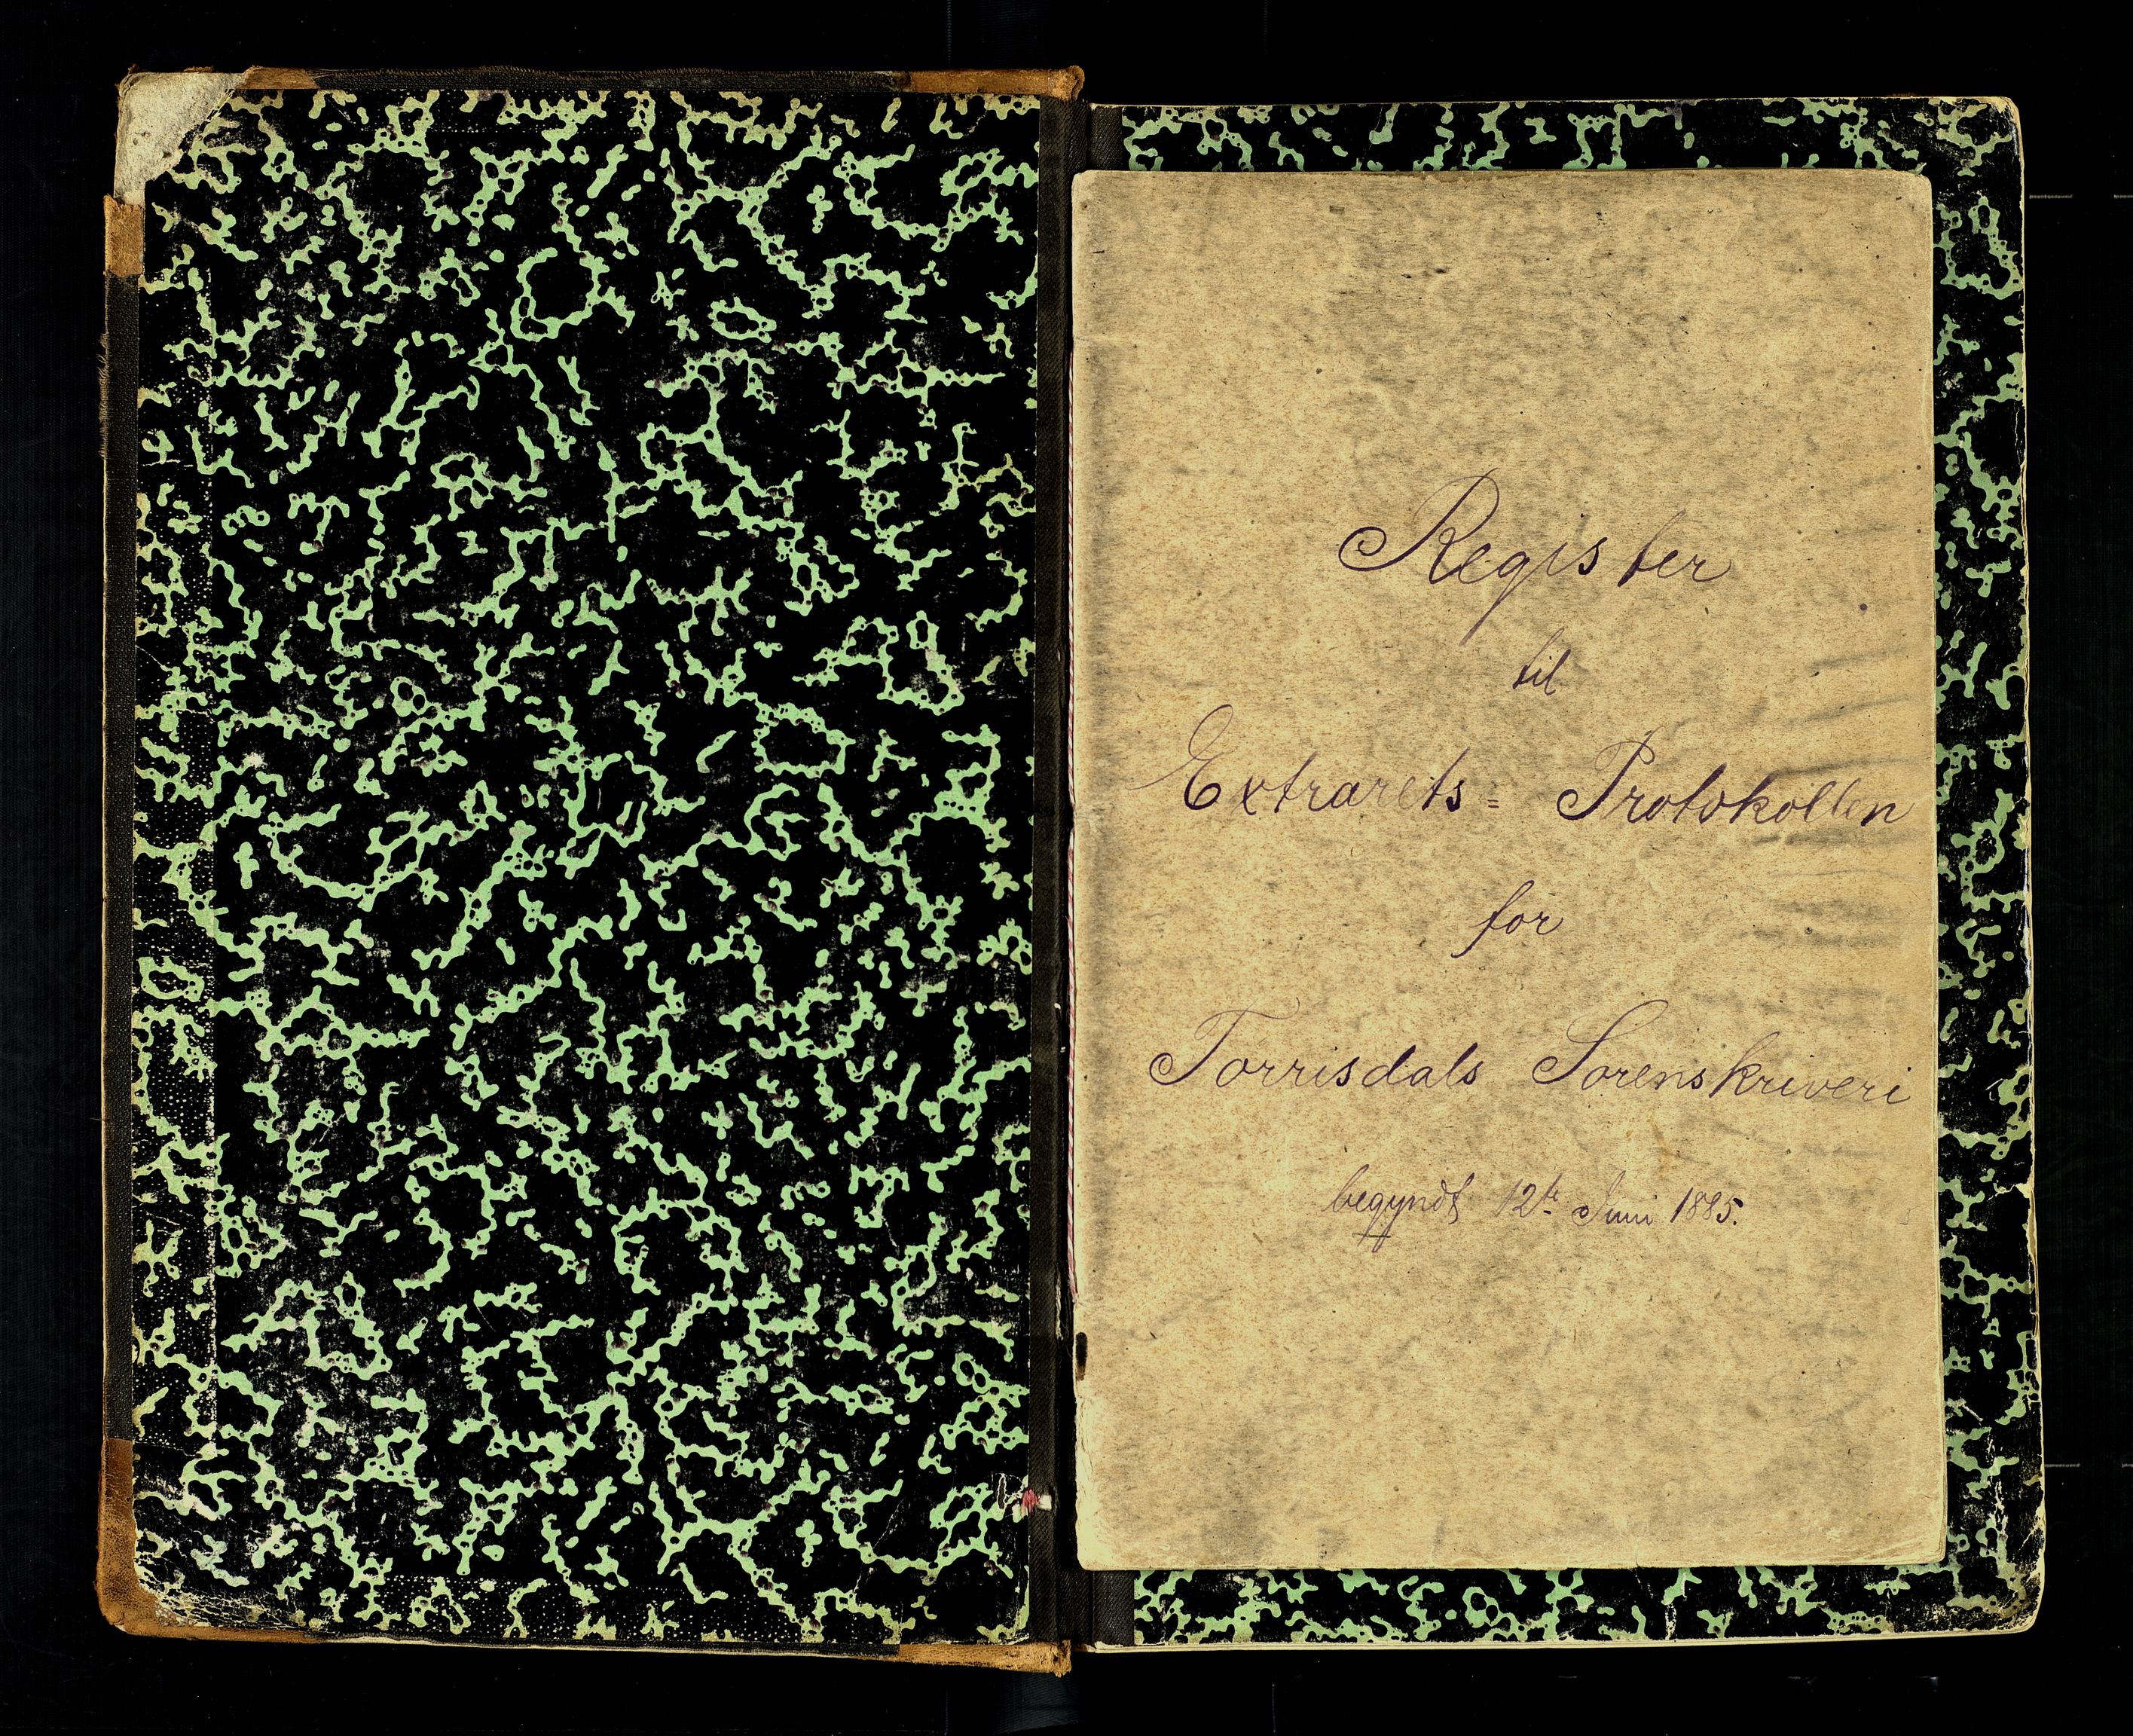 Register
til
Extrarets= Protokollen
for
Torrisdals Sorenskriveri
begyndt 12te Juni 1885.